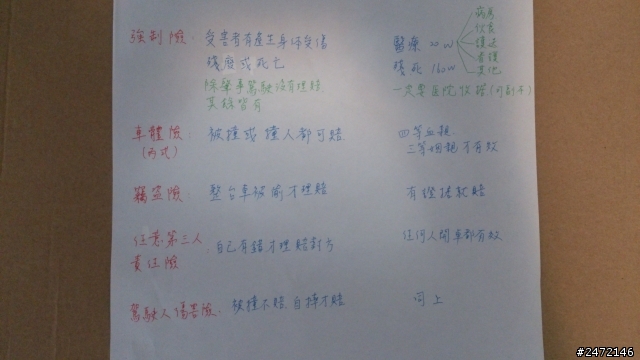 強制險: 受害者有產生身体受傷
殘廢或死亡
除肇事駕駛沒有理賠
其餘皆有
醫療 20W
殘死 160W
病房
伙食
護送
看護
其他
一定要医院收據(可副本)
車體險: 被撞或撞人都可賠
(丙式)
四等血親
三等姻親才有效
竊盜險: 整台車被偷才理賠
有證據就賠
任意第三人
責任險
自己有錯才理賠對方
任何人開車都有效
駕駛人傷害險: 被撞不賠 自摔才賠
同上
#2472146